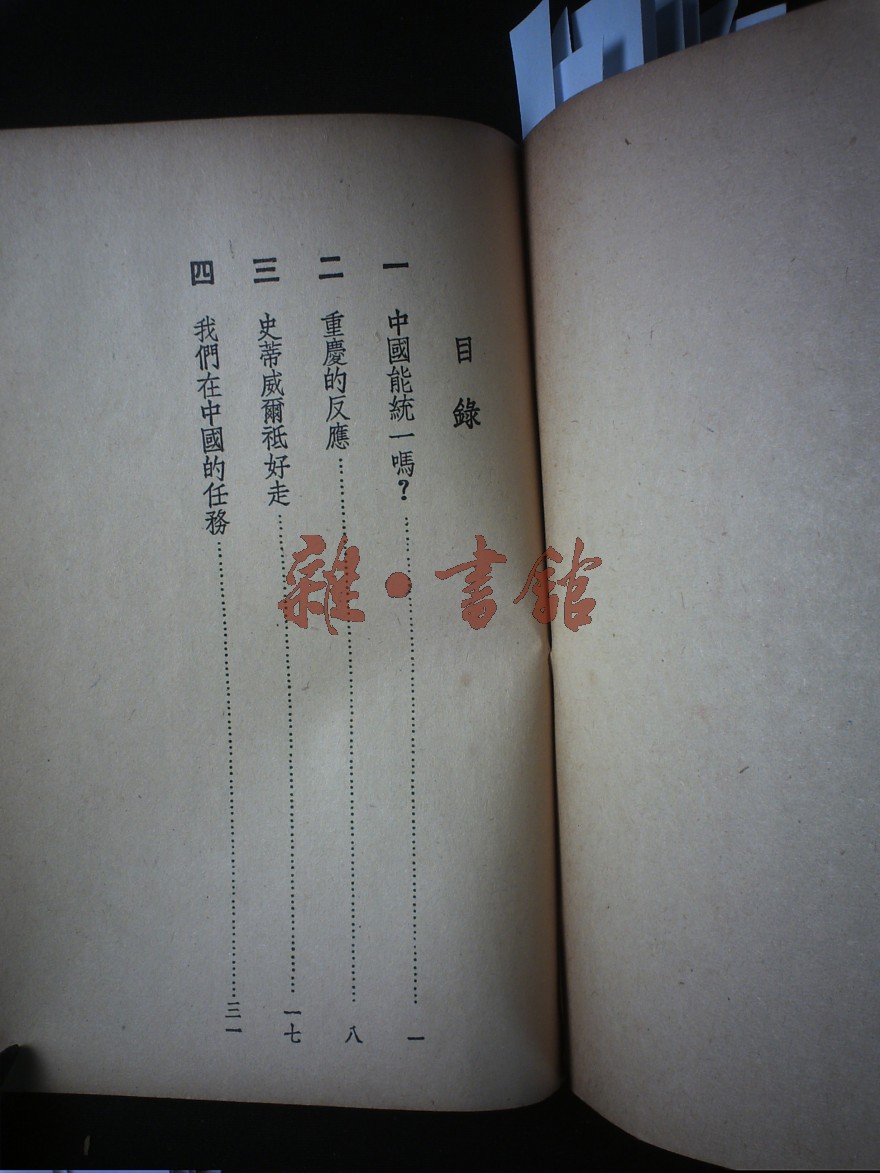 目錄
一 中國能統一嗎？……一
二 重慶的反應……八
三 史蒂威爾祇好走……一七
四 我們在中國的任務……三一
雜·書館